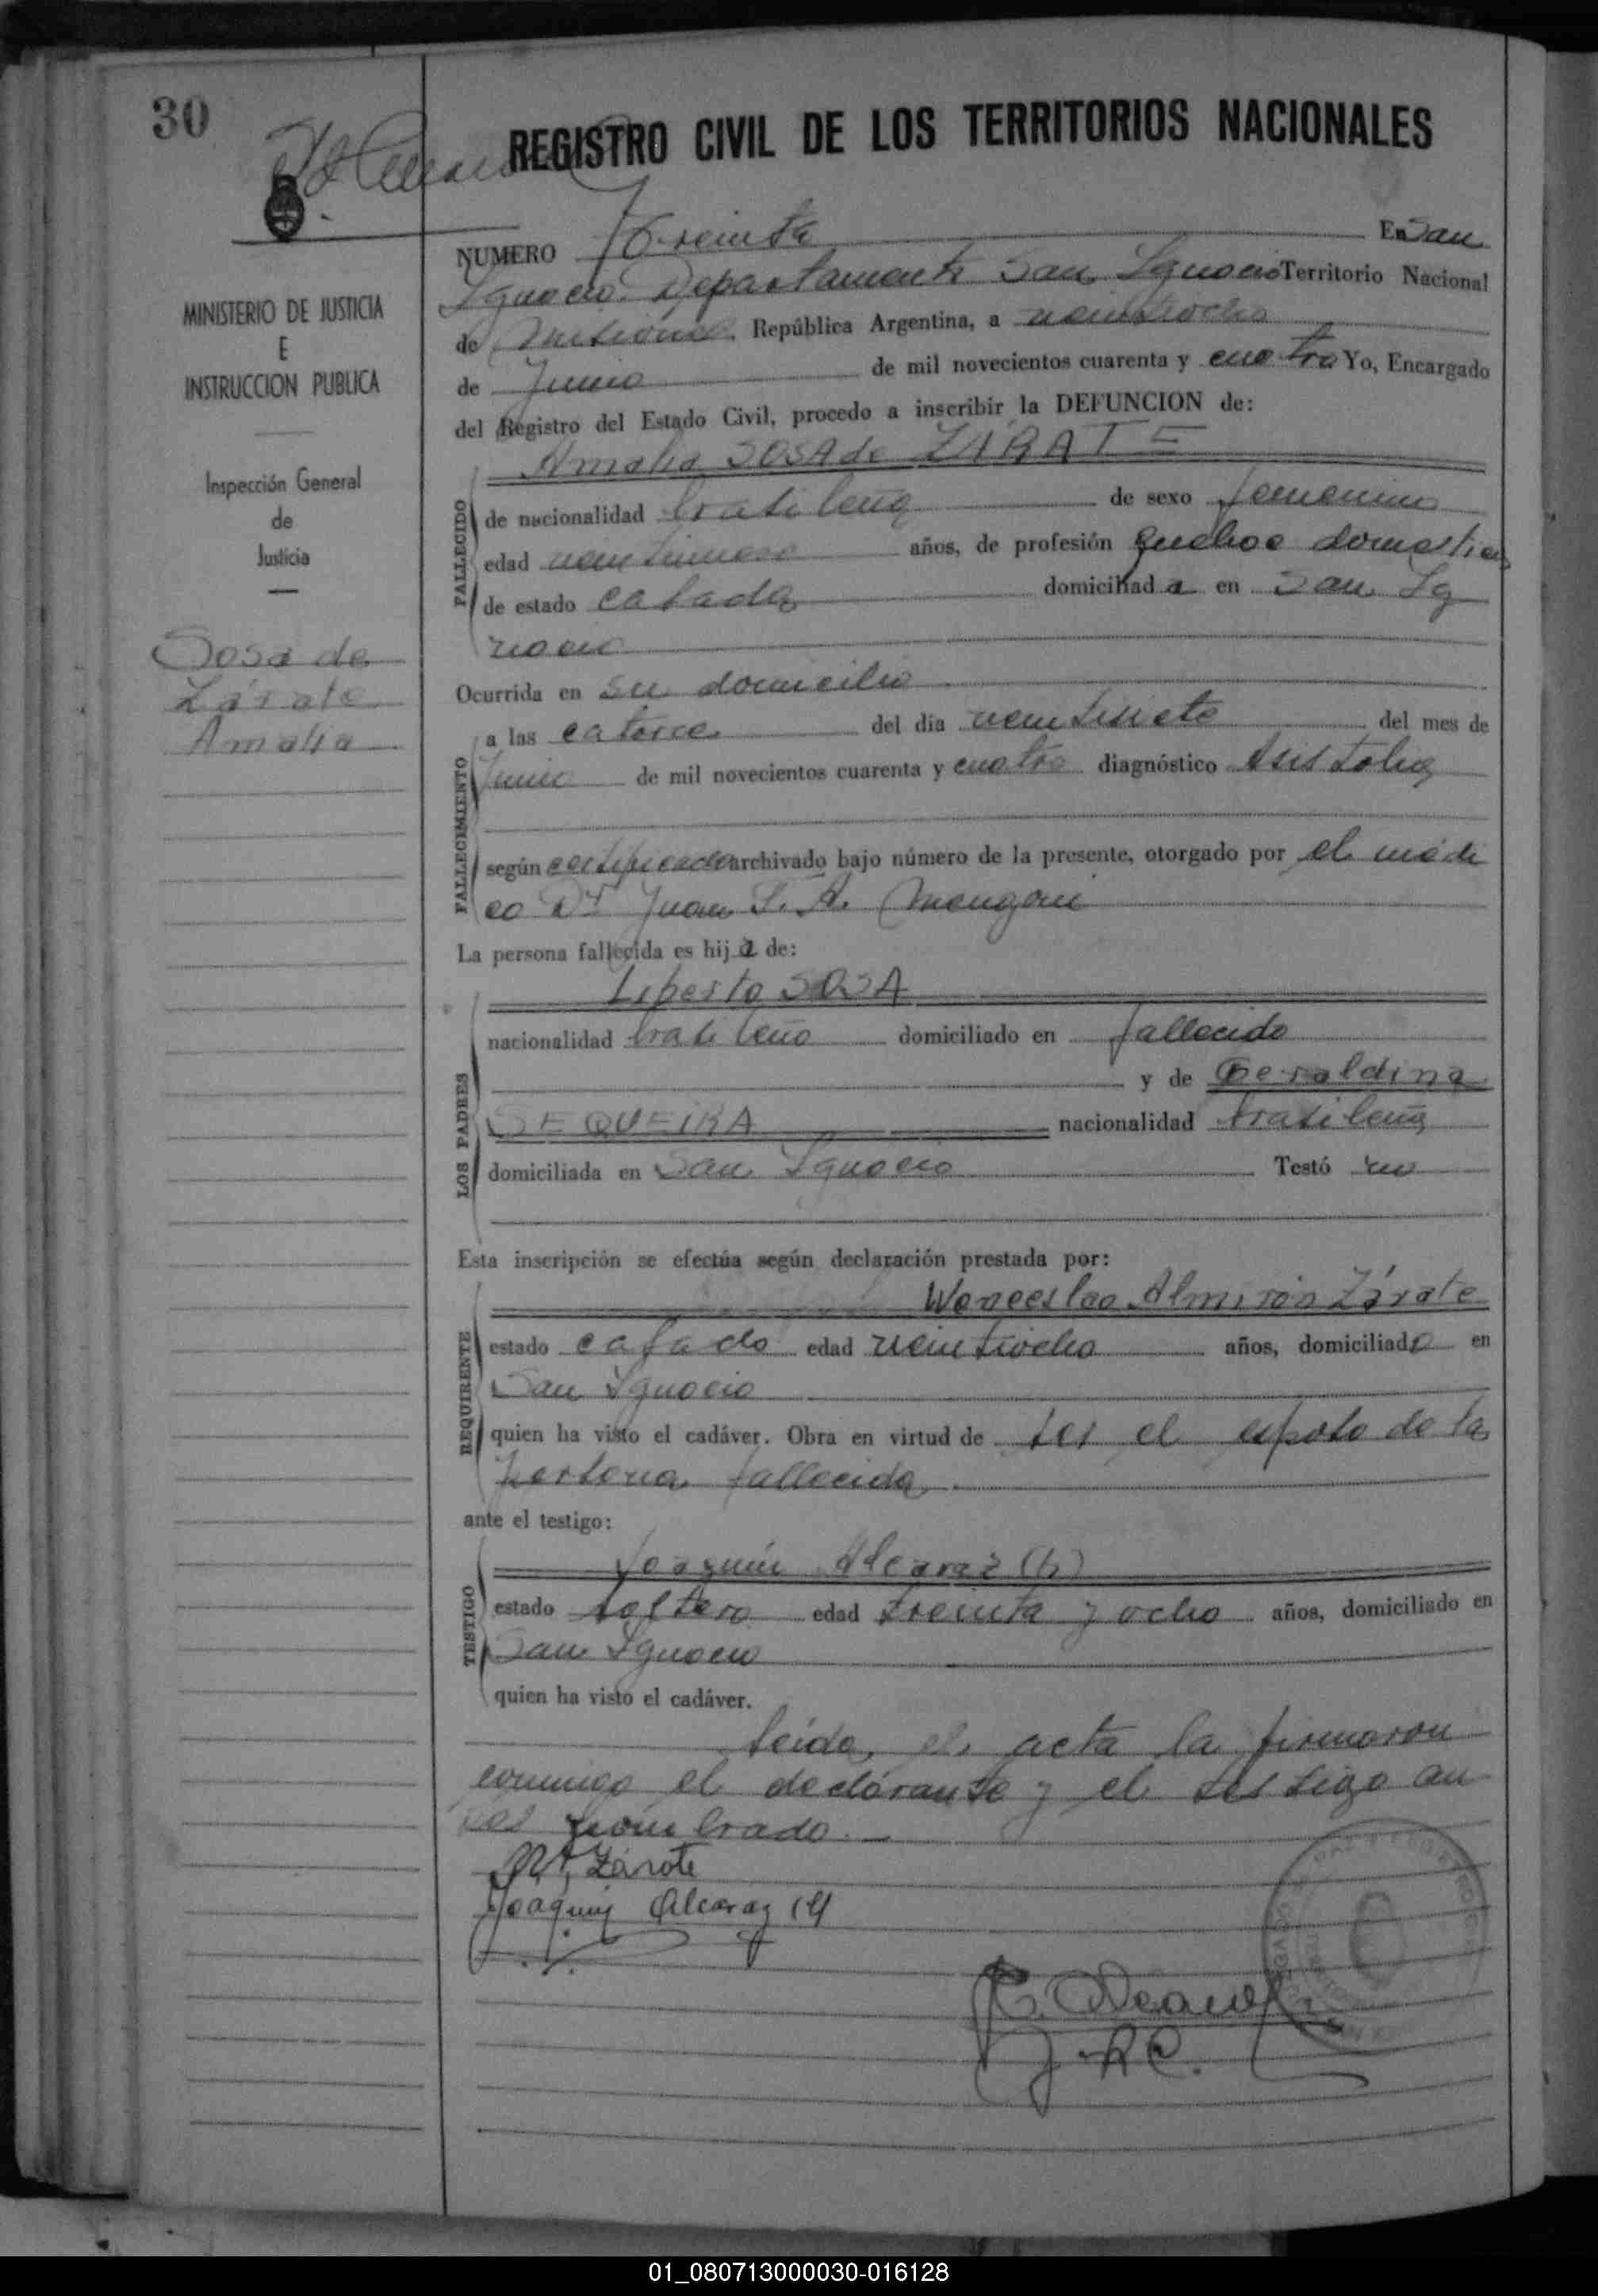 30
REGISTRO CIVIL DE LOS TERRITORIOS NACIONALES
NUMERO Treinta En San
Ignacio Departamento San Ignacio Territorio Nacional
de Misiones República Argentina, a veintiocho
de Junio de mil novecientos cuarenta y cuatro Yo, Encargado
del Registro del Estado Civil, procedo a inscribir la DEFUNCION de:
MINISTERIO DE JUSTICIA
E
INSTRUCCION PUBLICA
Inspección General
de
Justicia
Sosa de
Zárate
Amalia
FALLECIDO
Amalia SOSA de ZÁRATE
de nacionalidad brasileña de sexo femenino
edad veintinueve años, de profesión quehac domestico
de estado casada domiciliada en San Ig
nacio
FALLECIMIENTO
Ocurrida en su domicilio
a las catorce del día veintisiete del mes de
Junio de mil novecientos cuarenta y cuatro diagnóstico Asistolia
según certificado archivado bajo número de la presente, otorgado por el médi
co Dr Juan S. A. Mengoni
La persona fallecida es hija de:
LOS PADRES
Liberto SOSA
nacionalidad brasileño domiciliado en fallecido
y de Geraldina
SEQUEIRA nacionalidad brasileña
domiciliada en San Ignacio Testó no
Esta inscripción se efectúa según declaración prestada por:
REQUIRENTE
Wenceslao Almirón Zárate
estado casado edad veintiocho años, domiciliado en
San Ignacio
quien ha visto el cadáver. Obra en virtud de ser el esposo de la
persona fallecida
ante el testigo:
TESTIGO
Joaquín Alcaraz (h)
estado soltero edad treinta y ocho años, domiciliado en
San Ignacio
quien ha visto el cadáver.
Leída el acta la firmaron
conmigo el declarante y el testigo an
tes nombrado.
Zárate
Joaquin Alcaraz (h)
J. R C.
01_080713000030-016128